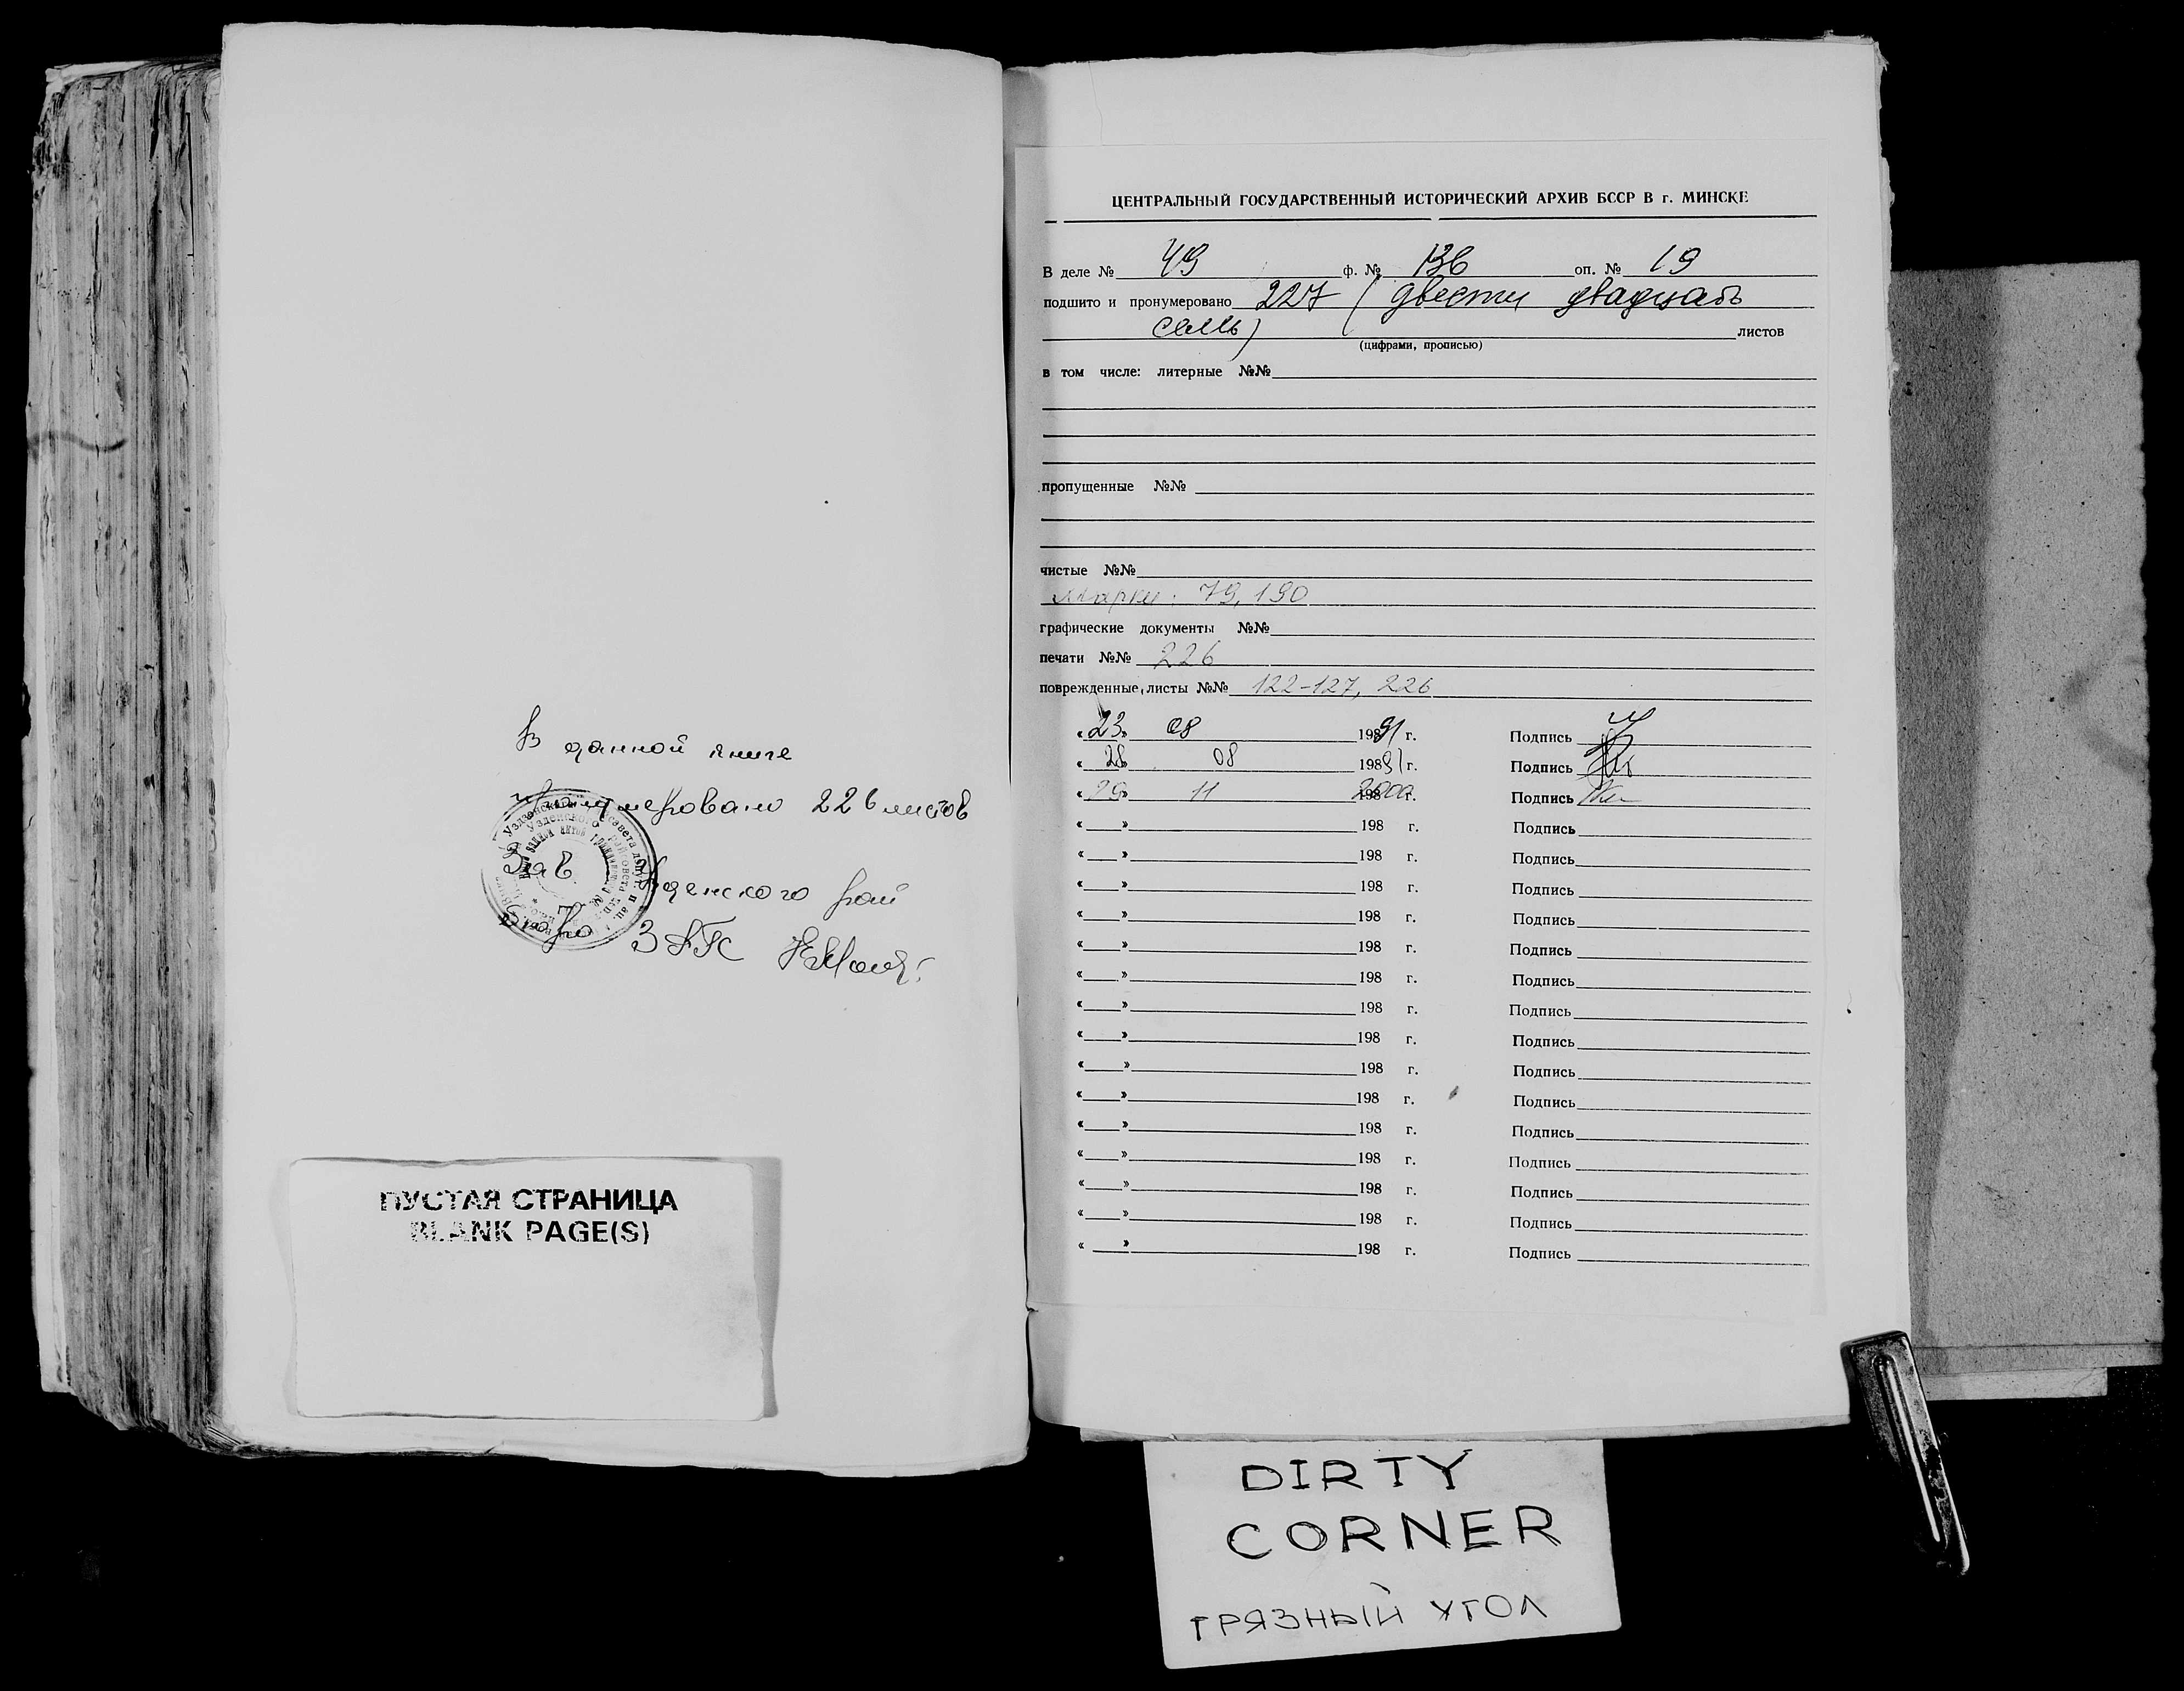 В данной книге
пронумеровано 226 листов
Зав. Узденского рай
бюро ЗАГС
ПУСТАЯ СТРАНИЦА
BLANK PAGE(S)
ЦЕНТРАЛЬНЫЙ ГОСУДАРСТВЕННЫЙ ИСТОРИЧЕСКИЙ АРХИВ БССР В г. МИНСКЕ
В деле № 49 ф. № 136 оп. № 19
подшито и пронумеровано 227 (двести двадцать
семь) листов
(цифрами, прописью)
в том числе: литерные №№
пропущенные №№
чистые №№
марки: 79, 190
графические документы №№
печати №№ 226
поврежденные листы №№ 122-127, 226
«23» 08 1991 г. Подпись
«28» 08 1991 г. Подпись
«29» 11 2000 г. Подпись
« » 198 г. Подпись
« » 198 г. Подпись
« » 198 г. Подпись
« » 198 г. Подпись
« » 198 г. Подпись
« » 198 г. Подпись
« » 198 г. Подпись
« » 198 г. Подпись
« » 198 г. Подпись
« » 198 г. Подпись
« » 198 г. Подпись
« » 198 г. Подпись
« » 198 г. Подпись
« » 198 г. Подпись
« » 198 г. Подпись
DIRTY
CORNER
ГРЯЗНЫЙ УГОЛ